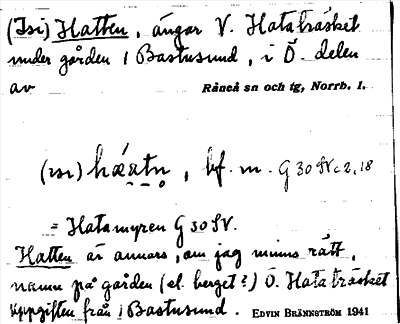 (Isi) Hatten, ängar V. Hataträsket
under gården 1 Bastusund, i Ö. delen
av Råneå sn och tg, Norrb. l.
(ɪsɪ) hǽatn̥, bf. m. G 30 SV. c 2, 18
= Hatamyren G 30 SV.
Hatten är annars, om jag minns rätt,
namn på gården (el. berget?) Ö. Hataträsket
Uppgiften från 1 Bastusund. EDVIN BRÄNNSTRÖM 1941